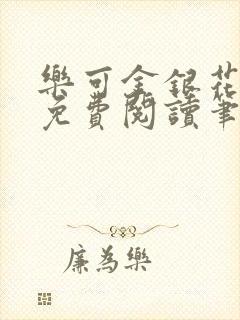 樂可金銀花
免費閱讀筆
廉為樂